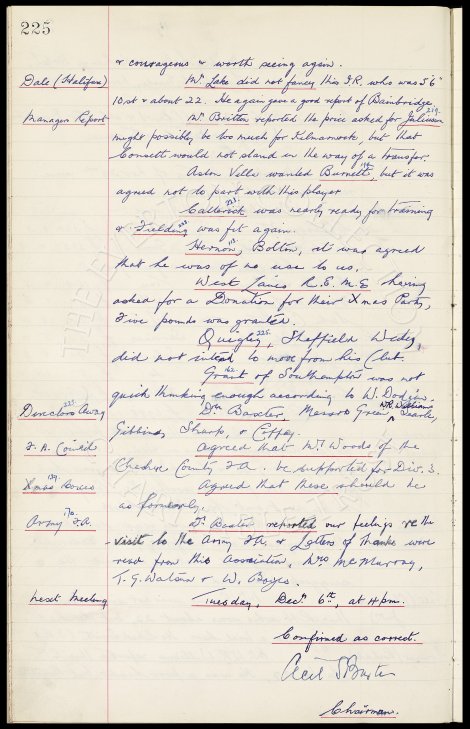 225
& courageous & worth seeing again.
Dale (Halifax) Mr. Lake did not fancy this I.R. who was 5'6"
10st & about 22. He again gave a good report of Bainbridge.
Managers Report Mr. Britton reported the price asked for Julians
might possibly be too much for Kilmarnock, but that
Consett would not stand in the way of a transfer.
Aston Villa wanted Burnett, but it was
agreed not to part with this player
Catterick was nearly ready for training
& Fielding was fit again.
Hernon, Bolton, it was agreed
that he was of no use to us.
West Lancs R.E.M.E having
asked for a Donation for their Xmas Party,
Five pounds was granted.
Quigley, 225. Sheffield Wedy,
did not intend to move from his Club.
Grant of Southampton was not
quick thinking enough according to W. Dodgin.
Directors Away 225. Drn Baxter, Messrs Green, W.R. Williams Searle,
Gibbins, Sharp, & Coffey.
F.A. Council Agreed that Mr. Woods of the
Cheshire County F.A. be supported for Div. 3.
Xmas Boxes Agreed that these should be
as formerly.
Army F.A. Dr. Baxter reported our feelings re the
visit to the Army F.A & Letters of thanks were
read from this Association, Mrs McMurray,
T.G. Watson & W. Boyes.
Next Meeting Tuesday, Decr 6th, at 4pm.
Confirmed as correct.
Cecil S Baxter
Chairman.